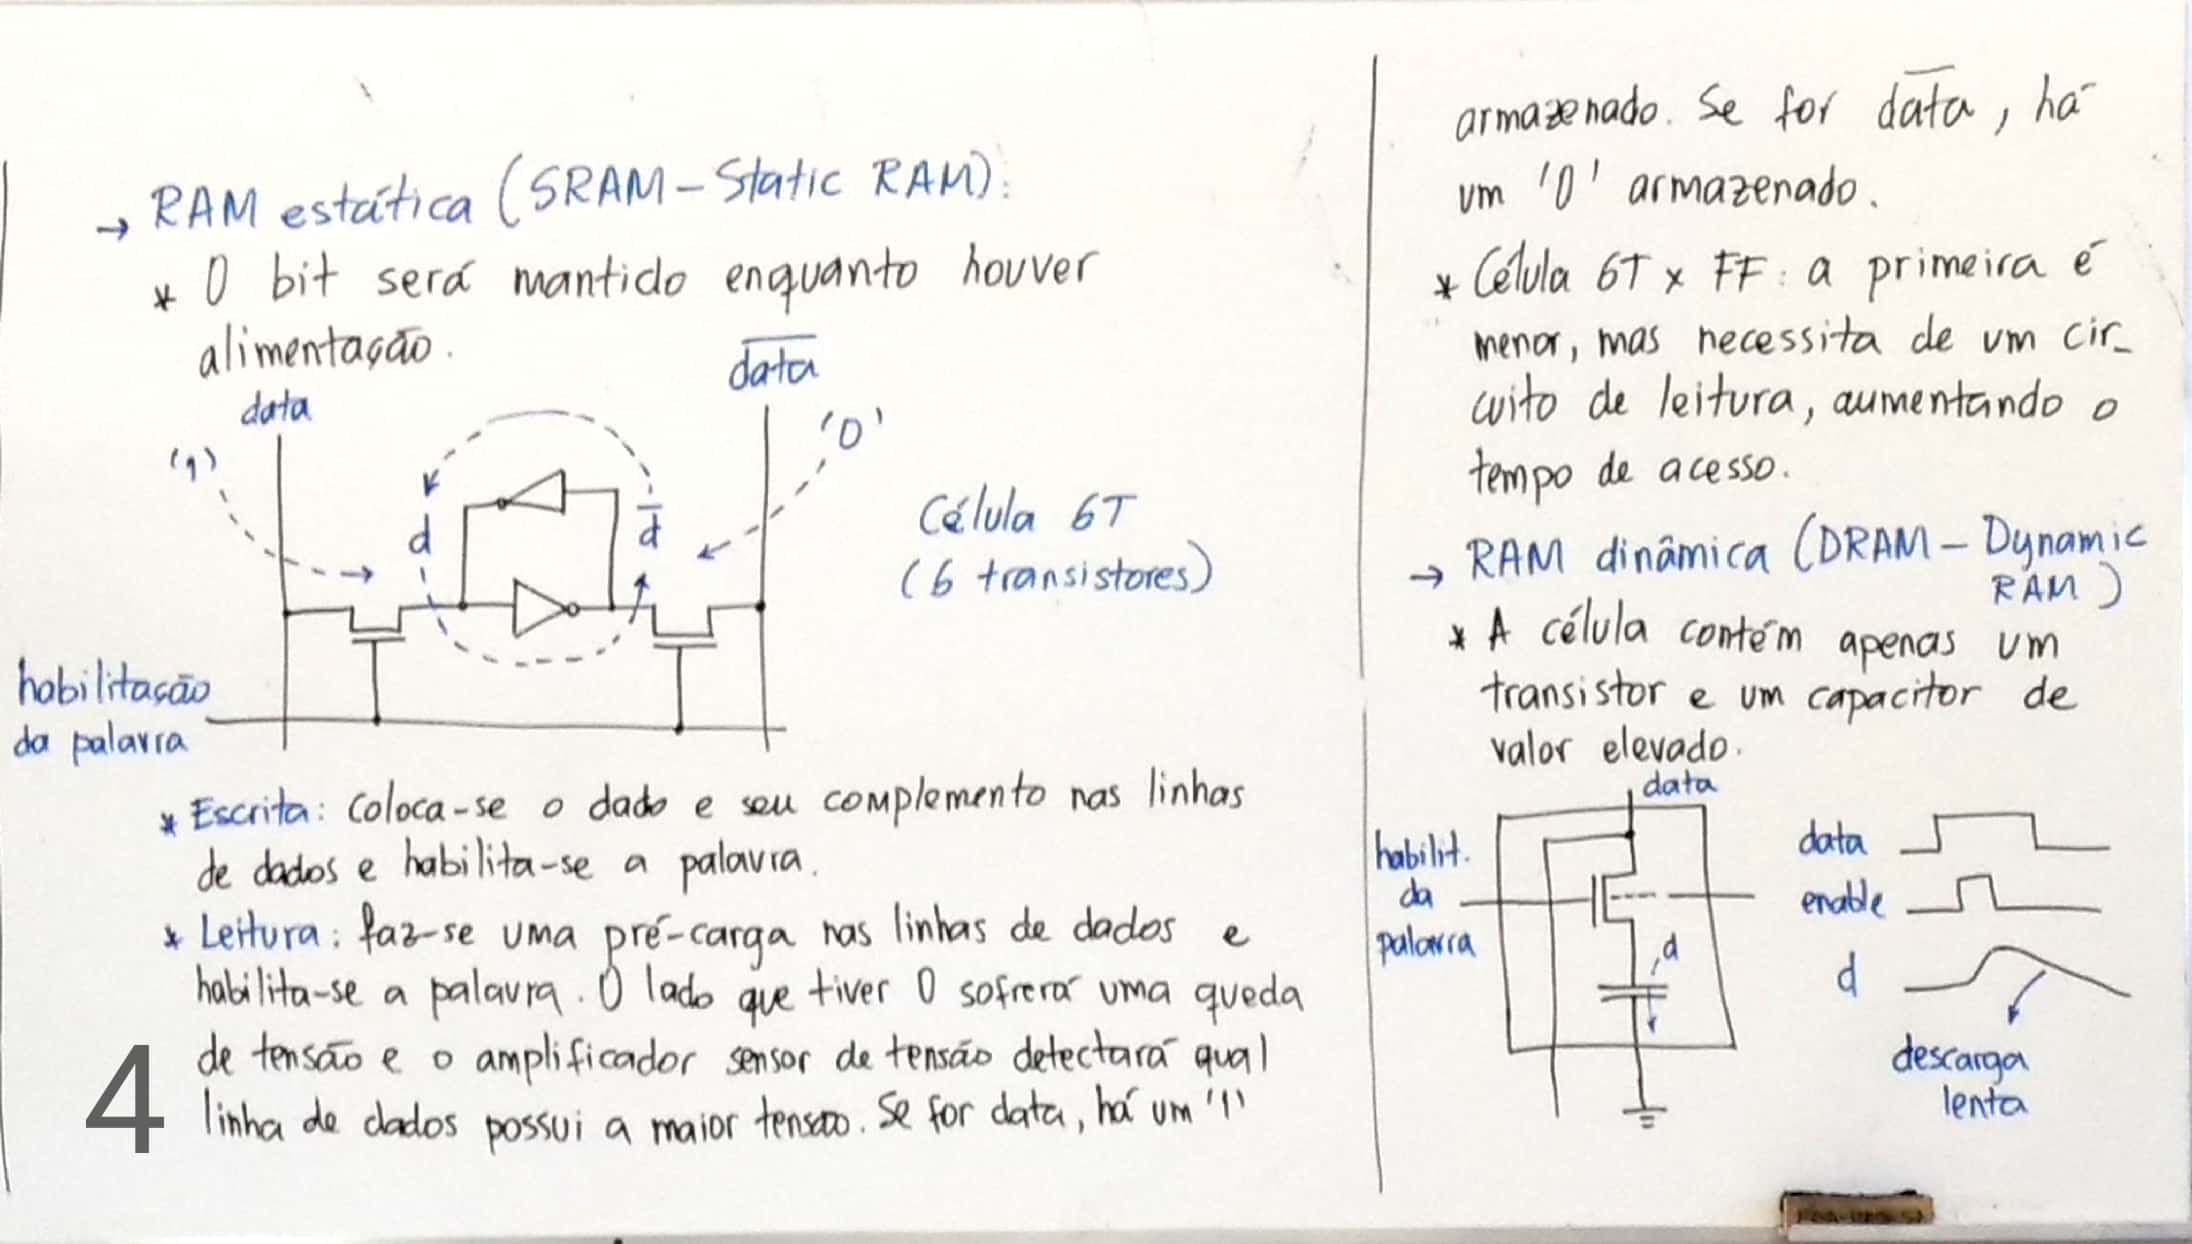 → RAM estática (SRAM – Static RAM):
* O bit será mantido enquanto houver
alimentação.
data
data
'1'
'0'
d
d
Célula 6T
(6 transistores)
habilitação
da palavra
* Escrita: Coloca-se o dado e seu complemento nas linhas
de dados e habilita-se a palavra.
* Leitura: faz-se uma pré-carga nas linhas de dados e
habilita-se a palavra. O lado que tiver 0 sofrerá uma queda
de tensão e o amplificador sensor de tensão detectará qual
linha de dados possui a maior tensão. Se for data, há um '1'
4
armazenado. Se for data, há
um '0' armazenado.
* Célula 6T x FF: a primeira é
menor, mas necessita de um cir-
cuito de leitura, aumentando o
tempo de acesso.
→ RAM dinâmica (DRAM – Dynamic
RAM)
* A célula contém apenas um
transistor e um capacitor de
valor elevado.
data
habilit.
da
palavra
d
data
enable
d
descarga
lenta